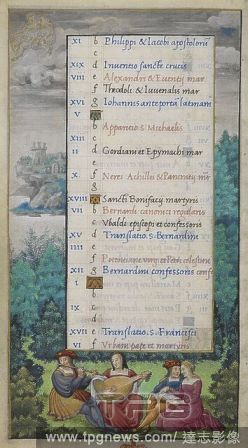 XI b Philippi & Iacobi apostolorū
c
XIX d Inventio sanctæ crucis
VIII e Alexandri & Eventij mar
f Theodoli & Iuvenalis mar
XVI g Iohannis anteportā latinam
V A
b Apparitio s. Michaelis
XIII c
II d Gordiani et Epymachi mar
e
X f Nerei Achillei & Pancratij
g
XVIII A Sancti Bonifacij martyris
VII b Bernardi canonici regularis
c Vbaldi episcopi et confessoris
XV d Translatio s. Bernardini
IIII e
f et
XII g Bernardini confessoris
I A
b
c
d
XVII e Translatio s. Francisci
VI f Urbani papæ et martyris
TPG
www.tpgnews.com / 達志影像